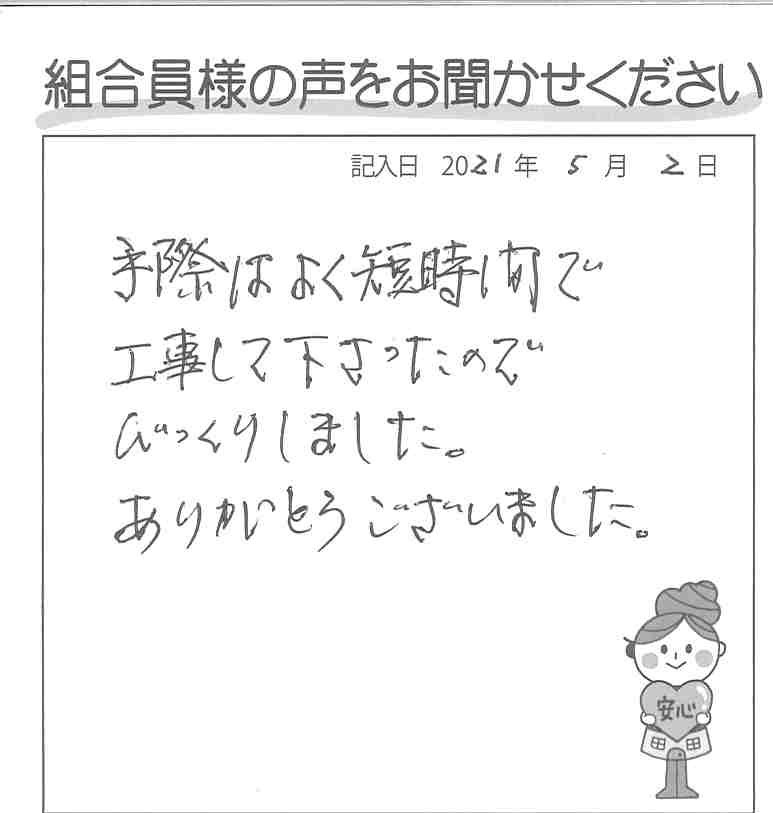 組合員様の声をお聞かせください
記入日 2021年 5月 2日
手際はよく短時間で
工事して下さったので
びっくりしました。
ありがとうございました。
安心